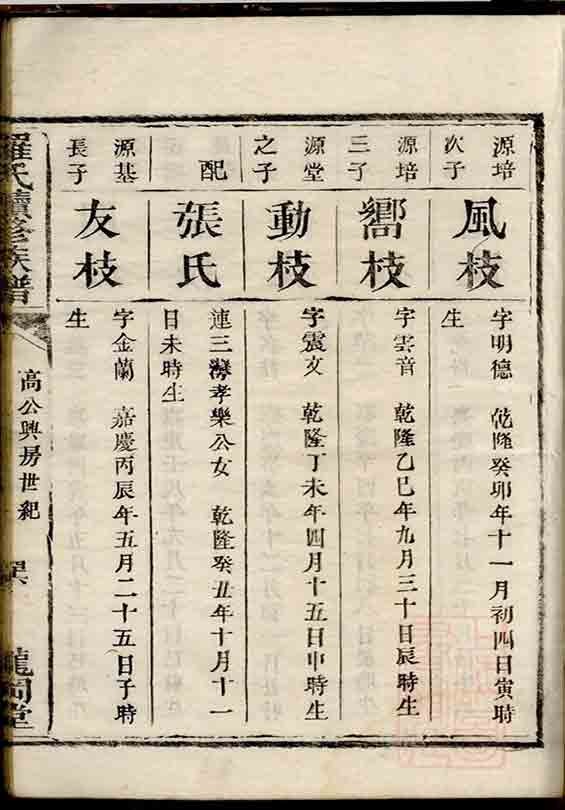 源培
次子
風枝
字明德　乾隆癸卯年十一月初四日寅時
生
源培
三子
嚮枝
字雲音　乾隆乙巳年九月三十日辰時生
源堂
之子
動枝
字震文　乾隆丁未年四月十五日申時生
配
張氏
連三灣孝樂公女　乾隆癸丑年十月十一
日未時生
源基
長子
友枝
字金蘭　嘉慶丙辰年五月二十五日子時
生
羅氏續修族譜
高公興房世紀
龍岡堂